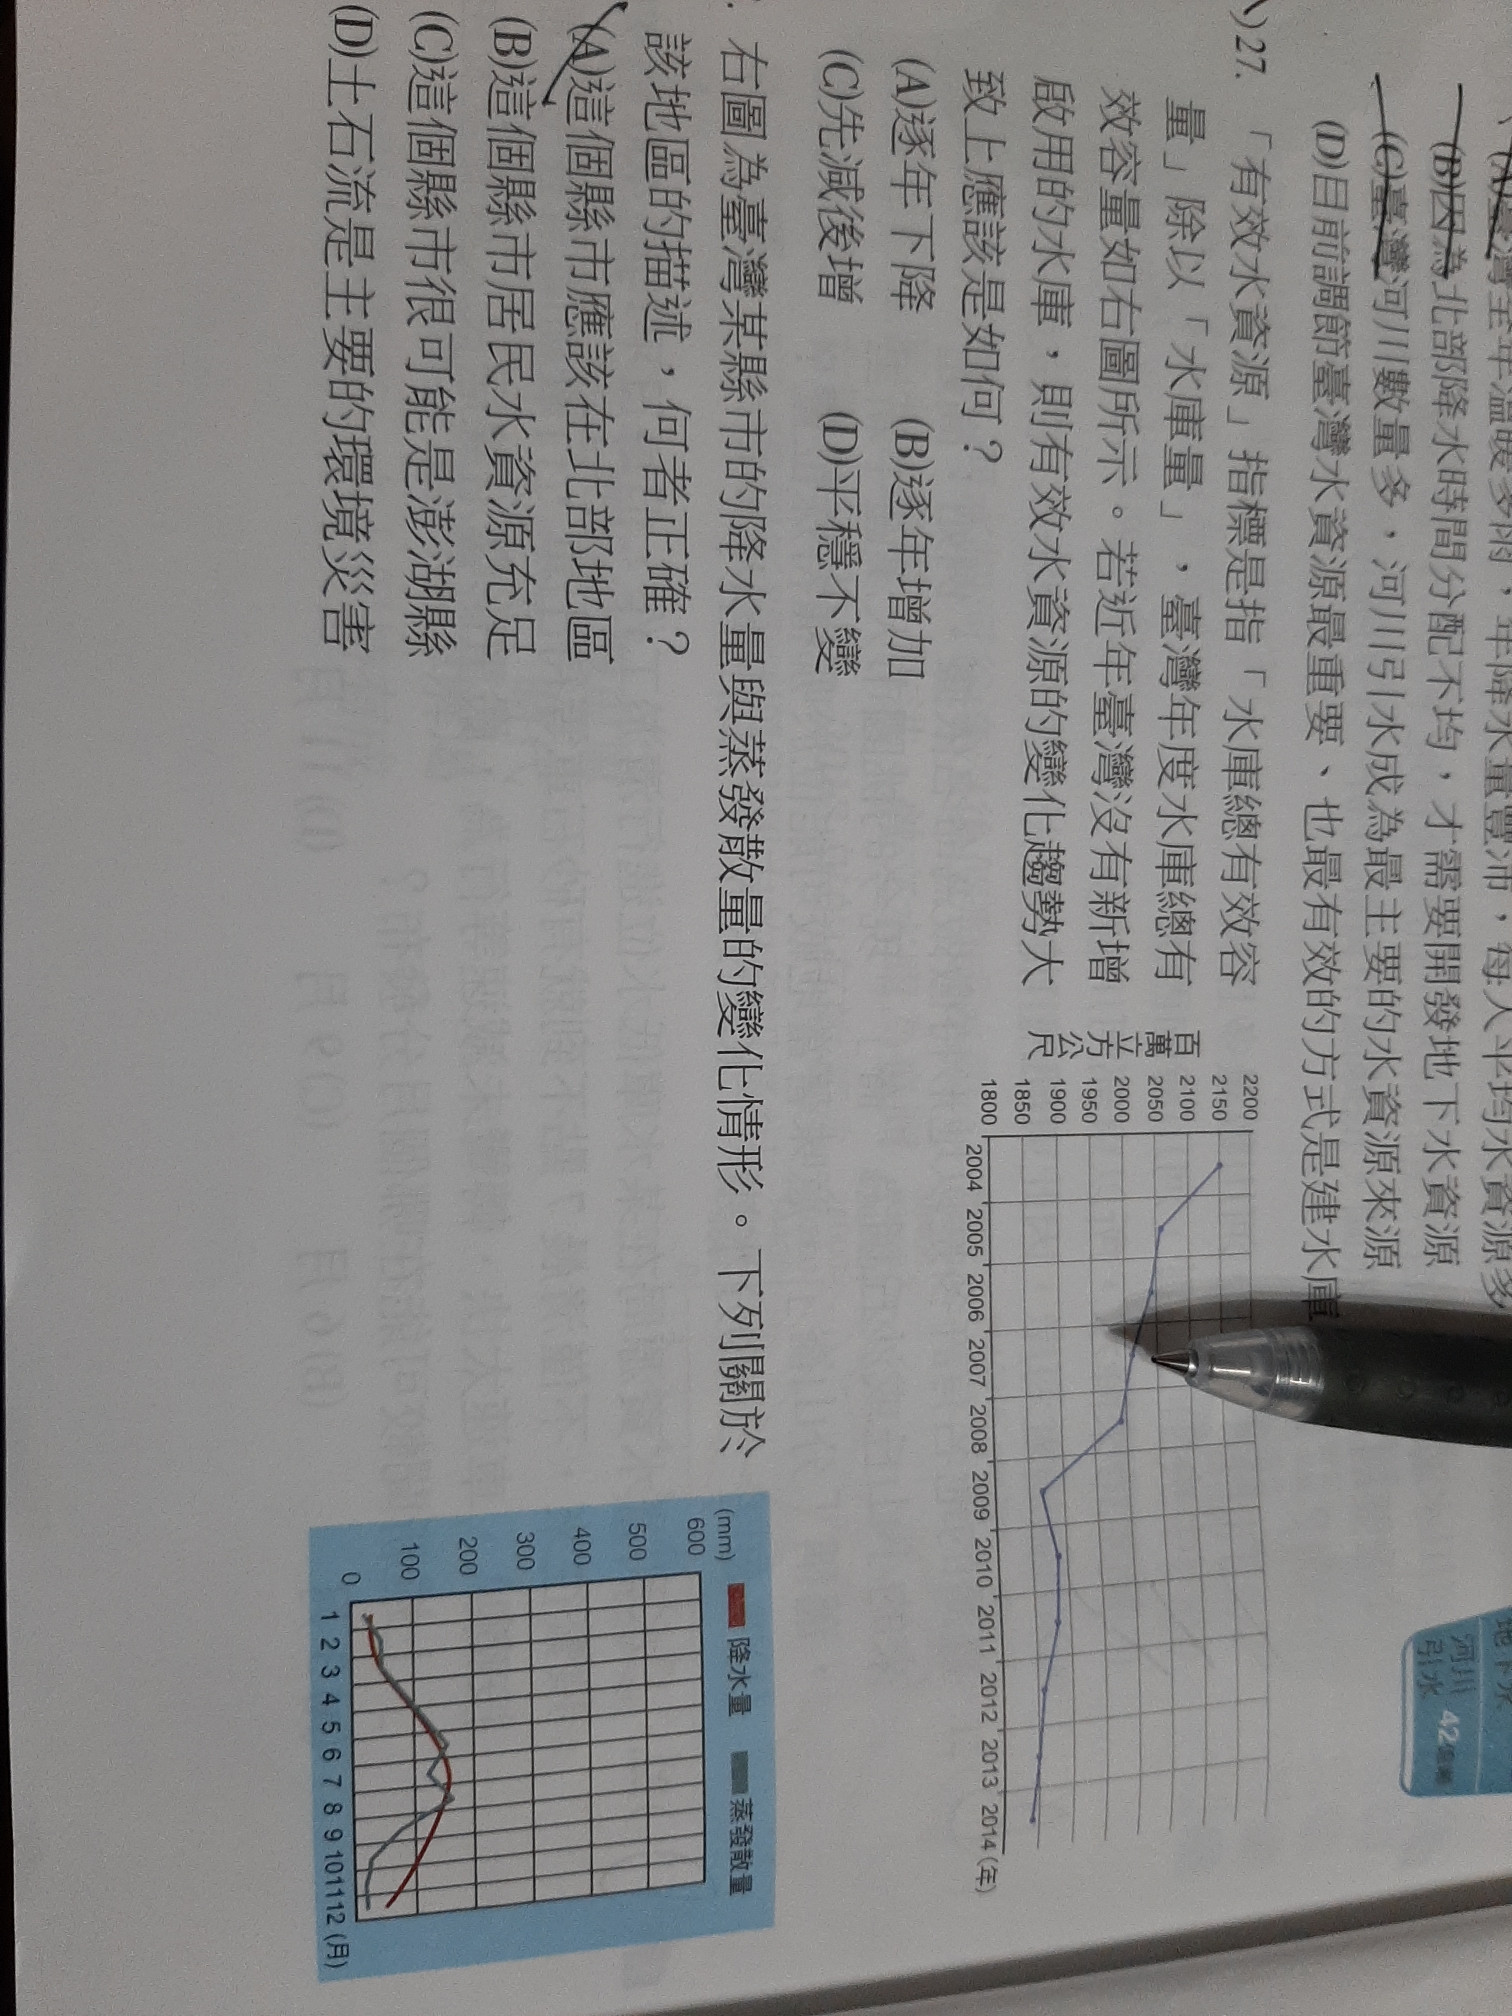 (B)因為北部降水時間分配不均，才需要開發地下水資源
(C)臺灣河川數量多，河川引水成為最主要的水資源來源
(D)目前調節臺灣水資源最重要、也最有效的方式是建水庫
地下水
河川
引水
42
)27. 「有效水資源」指標是指「水庫總有效容
量」除以「水庫量」，臺灣年度水庫總有
效容量如右圖所示。若近年臺灣沒有新增
啟用的水庫，則有效水資源的變化趨勢大
致上應該是如何？
(A)逐年下降 (B)逐年增加
(C)先減後增 (D)平穩不變
百萬立方公尺
2200
2150
2100
2050
2000
1950
1900
1850
1800
2004 2005 2006 2007 2008 2009 2010 2011 2012 2013 2014 (年)
右圖為臺灣某縣市的降水量與蒸發散量的變化情形。下列關於
該地區的描述，何者正確？
(A)這個縣市應該在北部地區
(B)這個縣市居民水資源充足
(C)這個縣市很可能是澎湖縣
(D)土石流是主要的環境災害
(mm) 降水量 蒸發散量
600
500
400
300
200
100
0
1 2 3 4 5 6 7 8 9 10 11 12 (月)